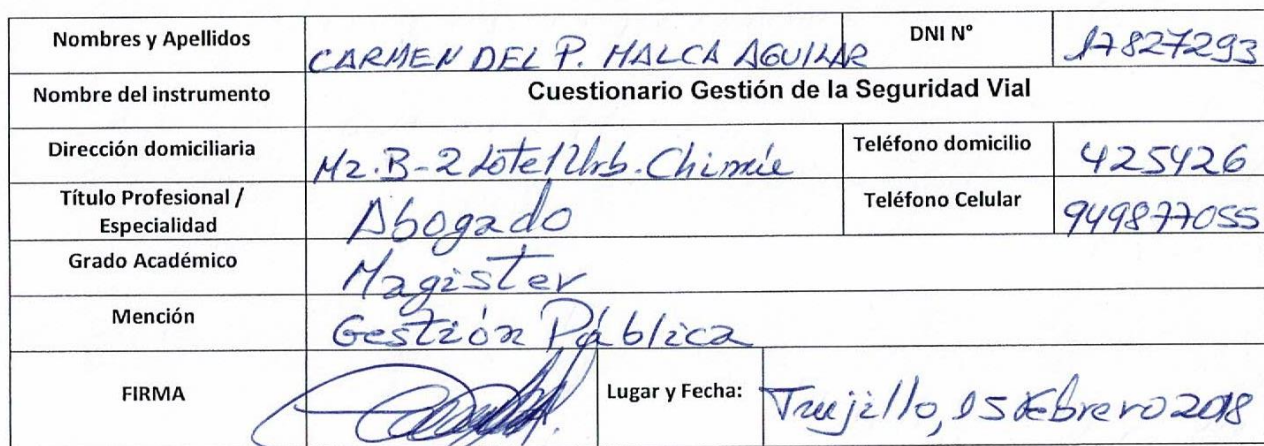 Nombres y Apellidos CARMEN DEL P. MALCA AGUILAR DNI N° 17827293
Nombre del instrumento Cuestionario Gestión de la Seguridad Vial
Dirección domiciliaria Mz.B-2 Lote 1 Urb. Chimú Teléfono domicilio 425426
Título Profesional / Especialidad Abogado Teléfono Celular 949877055
Grado Académico Magister
Mención Gestión Pública
FIRMA Lugar y Fecha: Trujillo, 15 Febrero 2018